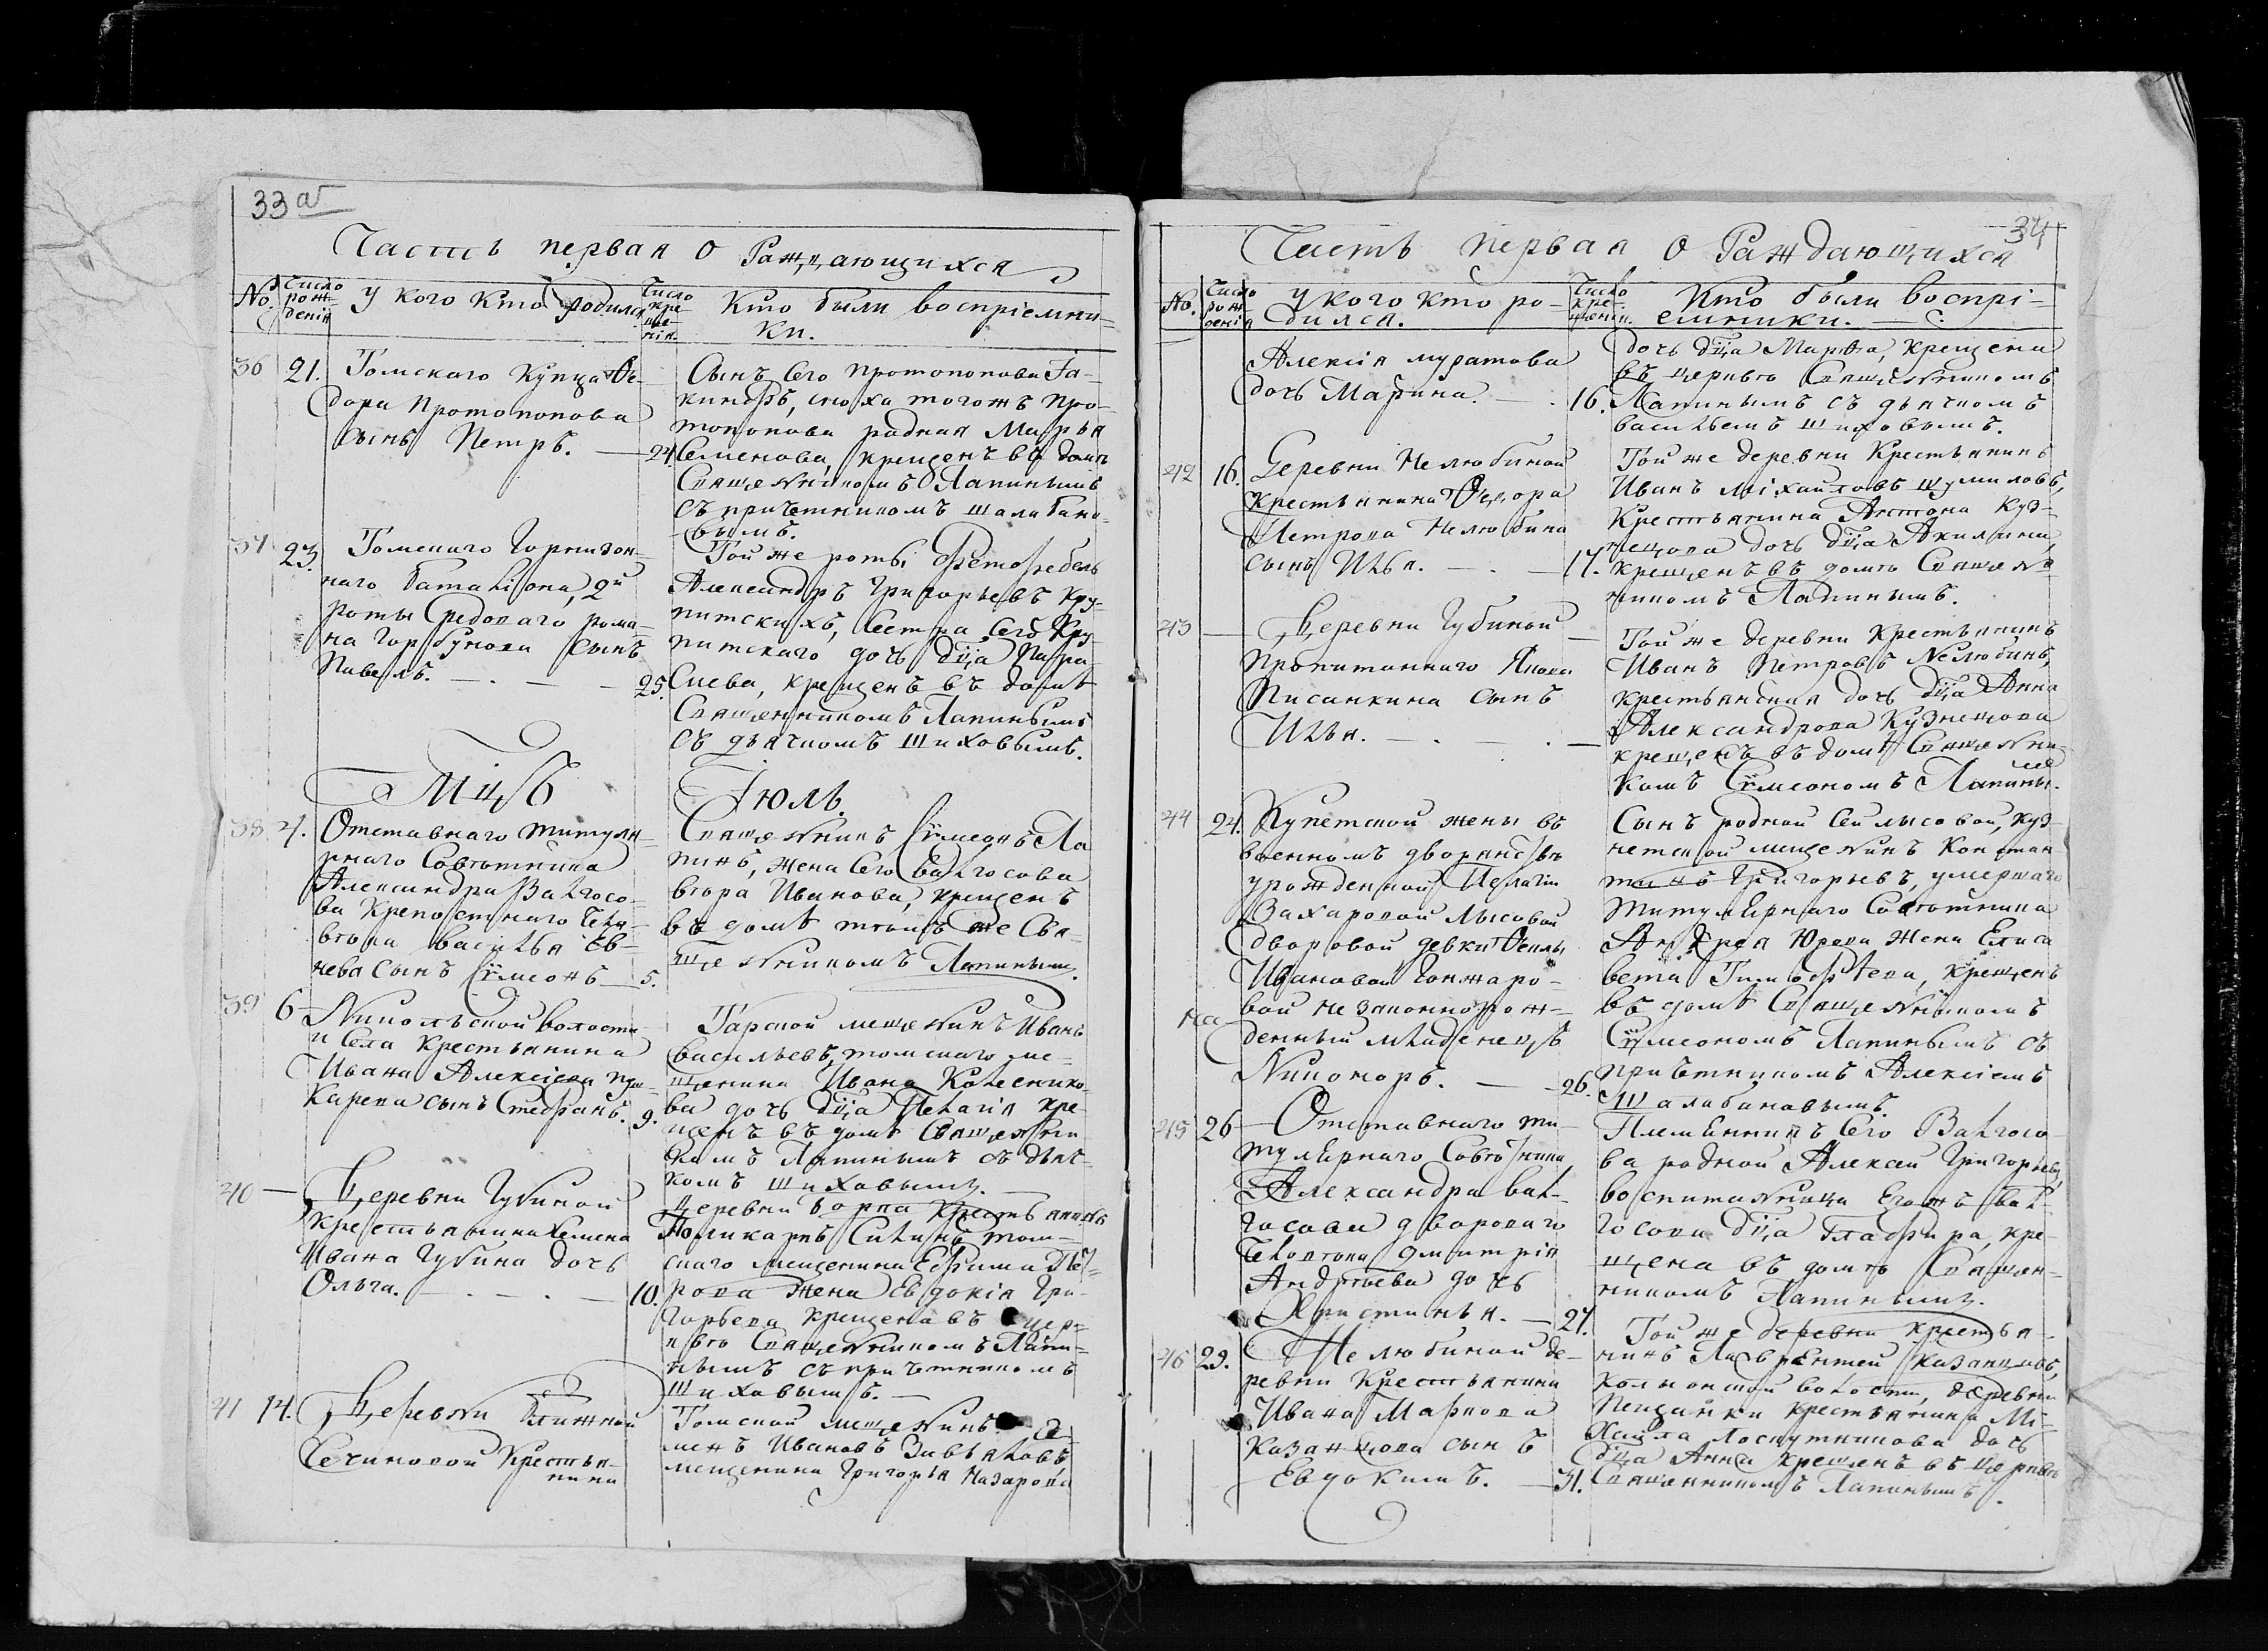 33 а
Часть первая о Раждающихся
No. Число рож-денія у кого кто родился Число кре-ще-нія. Кто были воспріемни-
ки.
36 21. Томскаго Купца Ѳе-
дора Протопопова
сынъ Петръ. — 24.
Сынъ Его Протопопова Іа-
кинфъ, сноха тогожъ Про-
топопова родная Марья
Семенова, крещенъ въ домѣ
Священникомъ Лапинымъ
съ причетникомъ Шалабано-
вымъ.
37 23. Томскаго Горнизон-
наго баталіона, 2й
роты Рядоваго рома-
на Горбунова сынъ
Павелъ. — . — — 25.
Той же роты Фетфебель
Александръ Григорьевъ Кру-
питскихъ, Сестра Его Кру
питскаго дочь дѣца Пара
скева, крещенъ въ домѣ
Священникомъ Лапинымъ
съ дьячкомъ Шиховымъ.
Мцъ Іюль.
38 4. Отставнаго титуля-
рнаго Совѣтника
Александра Валгосо-
ва Крепостнаго Чела-
вѣка Василья Ев-
чева сынъ Сѷмеонъ — 5.
Священникъ Сѷмеонъ Ла
пинъ, жена Его Валгосова
вѣра Иванова, крещенъ
въ домѣ тѣмъ же Свя-
щенникомъ Лапинымъ.
39 6 Никольской волости
и Села Крестьянина
Ивана Алексіева
Карева сынъ Стефанъ. 9.
Тарской мещенинъ Иванъ
Васильевъ, томскаго ме-
щенина Ивана Колеснико-
ва дочь дѣца Пелагія кре-
щенъ въ домѣ Священни-
комъ Лапинымъ съ дьяч-
комъ Шиховымъ.
40 — Деревни Губиной
крестьянина Семена
Иванова Губина дочь
Ольга. — . — . — 10.
Деревни Борка Крестьянинъ
Поликарпъ Силинъ, том-
скаго мещенина Ефима Пѣт-
рова жена Евдокія Гри-
горьева крещена въ цер-
квѣ Священникомъ Лапи-
нымъ съ причѣтникомъ
Шиховымъ. —
41 14. Деревни ближной
Сечиновой Крестья-
нина
Томской мещенинъ Се
менъ Ивановъ Завьяловъ
мещенина Григорья Назарова
34
Часть первая о Раждающихся
No. Число рож-денія у кого кто ро-
дился. Число кре-щенія. Кто были воспрі-
емники. — .
Алексія муратова
дочь Марина. — . 16.
дочь дѣца Марѳа, крещена
въ церквѣ Священникомъ
Лапинымъ съ дьячкомъ
васильемъ Шиховымъ.
42 16. Деревни Нелюбиной
Крестьянина Ѳедора
Петрова Нелюбина
сынъ Илья. — . — 17.
Той же деревни Крестьянинъ
Иванъ Міхайловъ Шумиловъ,
Крестьянина Антона Куз-
нецова дочь дѣца Акилина,
крещенъ въ домѣ Священ-
никомъ Лапинымъ.
43 — Деревни Губиной —
Пропитаннаго Якова
Писанкина сынъ
Илья. — . — . —
Той же деревни Крестьянинъ
Иванъ Петровъ Нелюбинъ,
крестьянская дочь дѣца Анна
Александрова Кузнецова
крещенъ въ домѣ Священни-
комъ Сѷмеономъ Лапинымъ.
44 24. Купетской жены въ
военномъ дворянствѣ
урожденной Пелагіи
Захаровой Лысовой
дворовой девки Ѳеклы
Ивановой Гонжаро-
вой незаконнорож-
денный младенецъ
Никоноръ. — — 26.
Сынъ родной Сей лысовой, куз-
нетской мещенинъ Констан-
тинъ Григорьевъ, умершаго
титулярнаго Совѣтника
Андрея Юрева жена Елиса
вета Тимофѣева, крещенъ
въ домѣ Священникомъ
Сѷмеономъ Лапинымъ съ
причѣтникомъ Алексіемъ
Шалабановымъ.
45 26 Отставнаго ти-
тулярнаго Совѣтника
Александра вал-
госова двороваго
Человѣка Дмитрія
Андрѣева дочь
Христинья. — 27.
Племянникъ Его Валгосо
ва родной Алексѣй Григорьевъ,
воспитанница Егожъ вал-
госова дѣца Глафира, кре-
щена въ домѣ Священ-
никомъ Лапинымъ.
46 29. Нелюбиной де-
ревни Крестьянина
Ивана Маркова
Казанцова сынъ
Евдокимъ. — 31.
Той же деревни крестья-
нинъ Лаврентей Казанцовъ,
волости, деревни
Песчанки крестьянина Мі-
хаила Лоскутникова дочь
дѣца Анна крещенъ въ церквѣ
Священникомъ Лапинымъ.